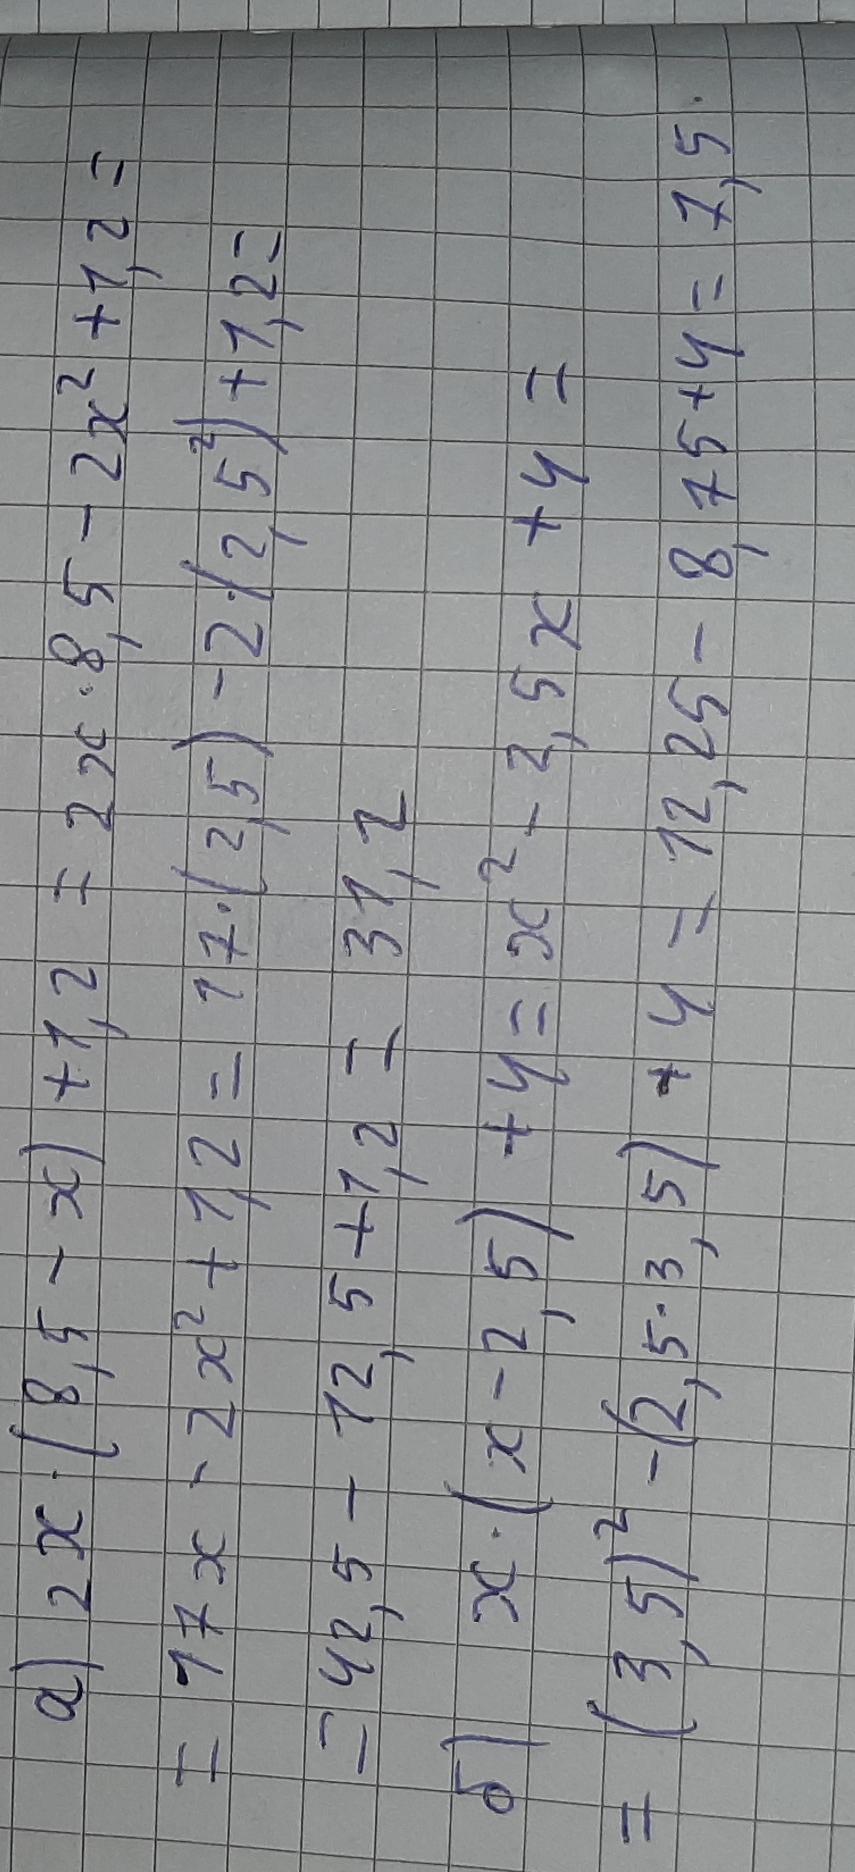 а) 2x·(8,5-x)+1,2 = 2x·8,5-2x²+1,2=
=17x-2x²+1,2=17·(2,5)-2·(2,5²)+1,2=
=42,5-12,5+1,2=31,2
б) x·(x-2,5)+4=x²-2,5x+4=
=(3,5)²-(2,5·3,5)+4=12,25-8,75+4=7,5.